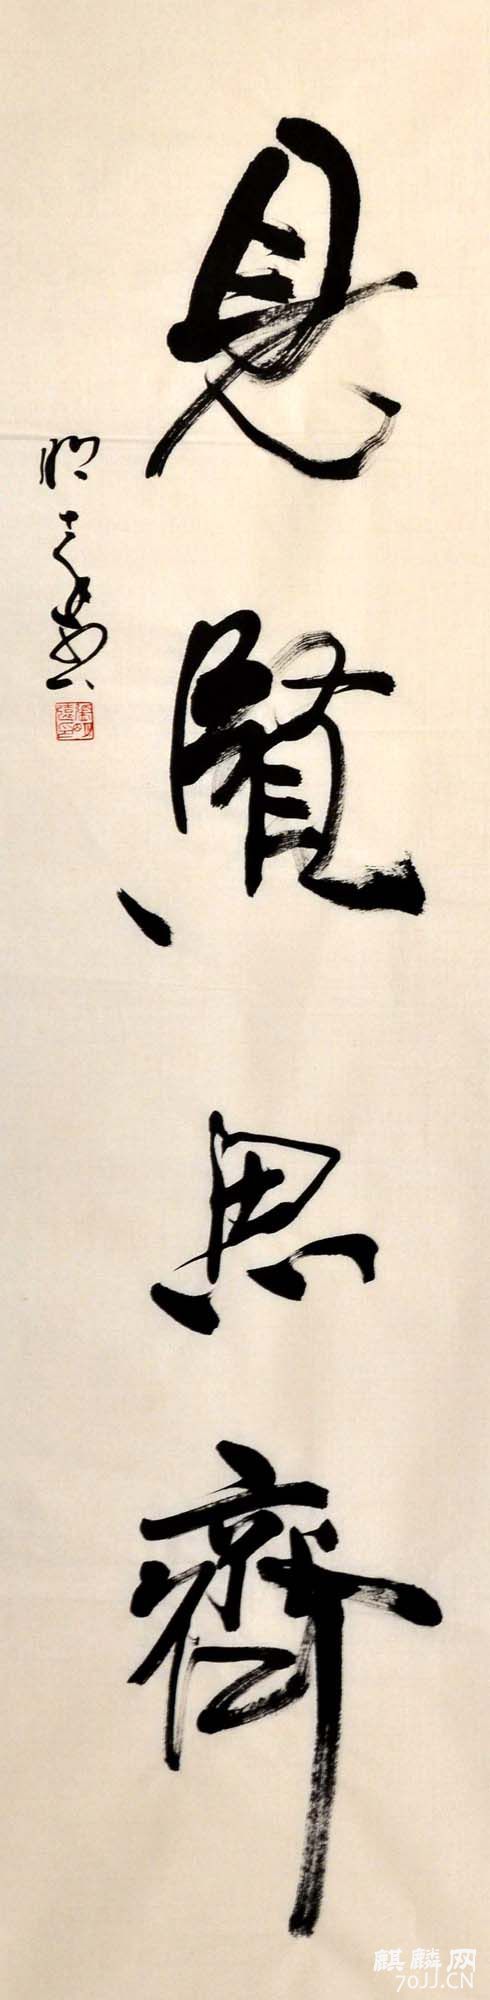 見賢思齊
麒麟网
70JJ.CN